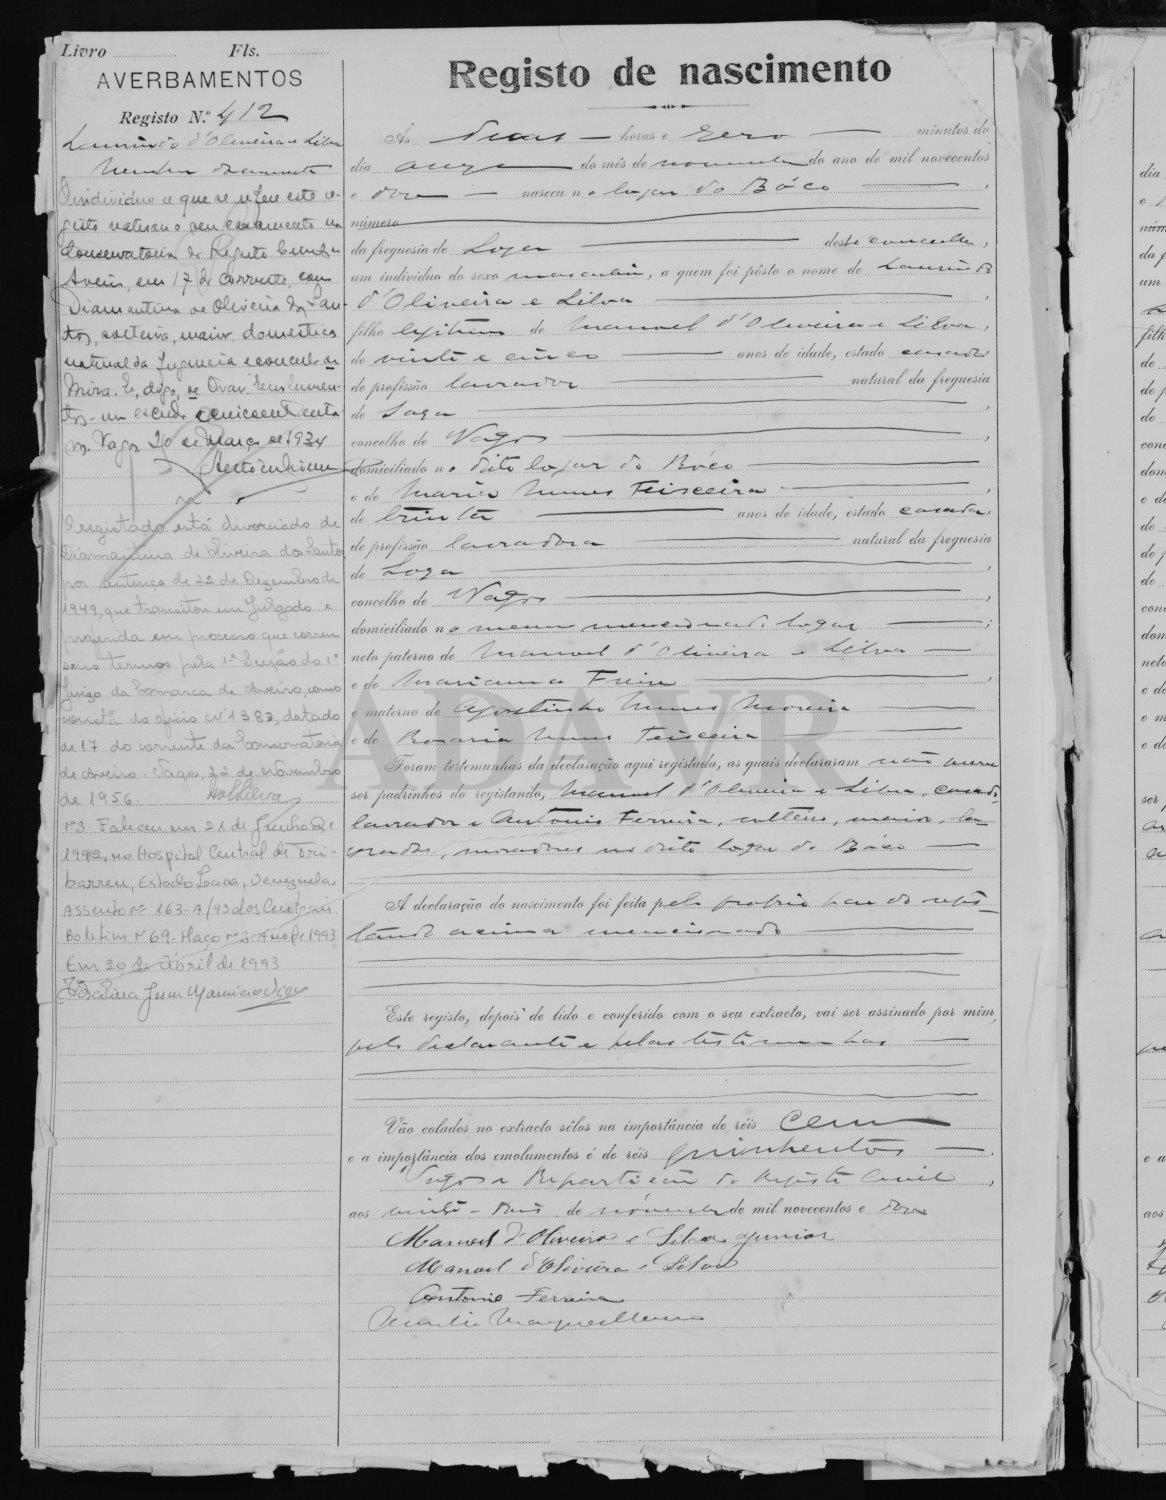 Livro Fls.
AVERBAMENTOS
Registo N.º 412
Laurindo d'Oliveira e Silva
O individuo a que se refere este re-
gisto natureza o seu casamento na
Conservatoria do Registo Civil de
Aveiro, em 17 do corrente, com
Diamantina de Oliveira dos San-
tos, solteira, maior, domestica
natural da freguesia e concelho de
Mira. E, digo, de Ovar. Emolumen-
tos - um escudo e cincoenta centa
vos. Vagos 20 de Março de 1934
O registado está divorciado de
Diamantina de Oliveira dos Santos
por sentença de 22 de Dezembro de
1949, que transitou em Julgado e
proferida em processo que correu
seus termos pela 1ª Secção do 1º
Juizo da Comarca de Aveiro, como
consta do oficio nº 1383, datado
de 17 do corrente da Conservatória
de Aveiro. Vagos, 22 de Novembro
de 1956.
Nº 3. Faleceu em 21 de Junho de
1992, no Hospital Central de
barren, Estado Lara, Venezuela.
Assento nº 163-A/93 dos Centrais
Boletim nº 69. Maço nº 3 Ano de 1993
Em 20 de Abril de 1993
Registo de nascimento
Ás duas horas e zero minutos do
dia onze do mês de novembro do ano de mil novecentos
e doze nasceu no lugar do Bóco ,
número
da freguesia de Soza deste concelho,
um individuo do sexo masculino, a quem foi pôsto o nome de Laurindo
d'Oliveira e Silva ,
filho legitimo de Manuel d'Oliveira e Silva,
de vinte e cinco anos de idade, estado casado
de profissão lavrador natural da freguesia
de Soza ,
concelho de Vagos ,
domiciliado no dito lugar do Bóco
e de Maria Nunes Teixeira ,
de trinta anos de idade, estado casada,
de profissão lavradora natural da freguesia
de Soza ,
concelho de Vagos ,
domiciliado no mesmo mencionado lugar ;
neto paterno de Manuel d'Oliveira e Silva
e de Marianna Freire ,
e materno de Agostinho Nunes Moreira
e de Rosaria Nunes Teixeira
Foram testemunhas da declaração aqui registada, as quais declararam não querer
ser padrinhos do registando, Manuel d'Oliveira e Silva, casado,
lavrador e Antonio Ferreira, solteiro, maior, la-
vrador, moradores no dito lugar do Bóco
A declaração do nascimento foi feita pelo proprio pae do regis-
tando acima mencionado
Este registo, depois de lido e conferido com o seu extracto, vai ser assinado por mim,
pelo declarante e pelas testemunhas
Vão colados no extracto sêlos na importância de réis Cem
e a importância dos emolumentos é de réis quinhentos .
Vagos e Repartição do Registo Civil ,
aos vinte-dois de novembro de mil novecentos e doze
Manuel d'Oliveira e Silva Junior
Manuel d'Oliveira e Silva
Antonio Ferreira
ADAVR